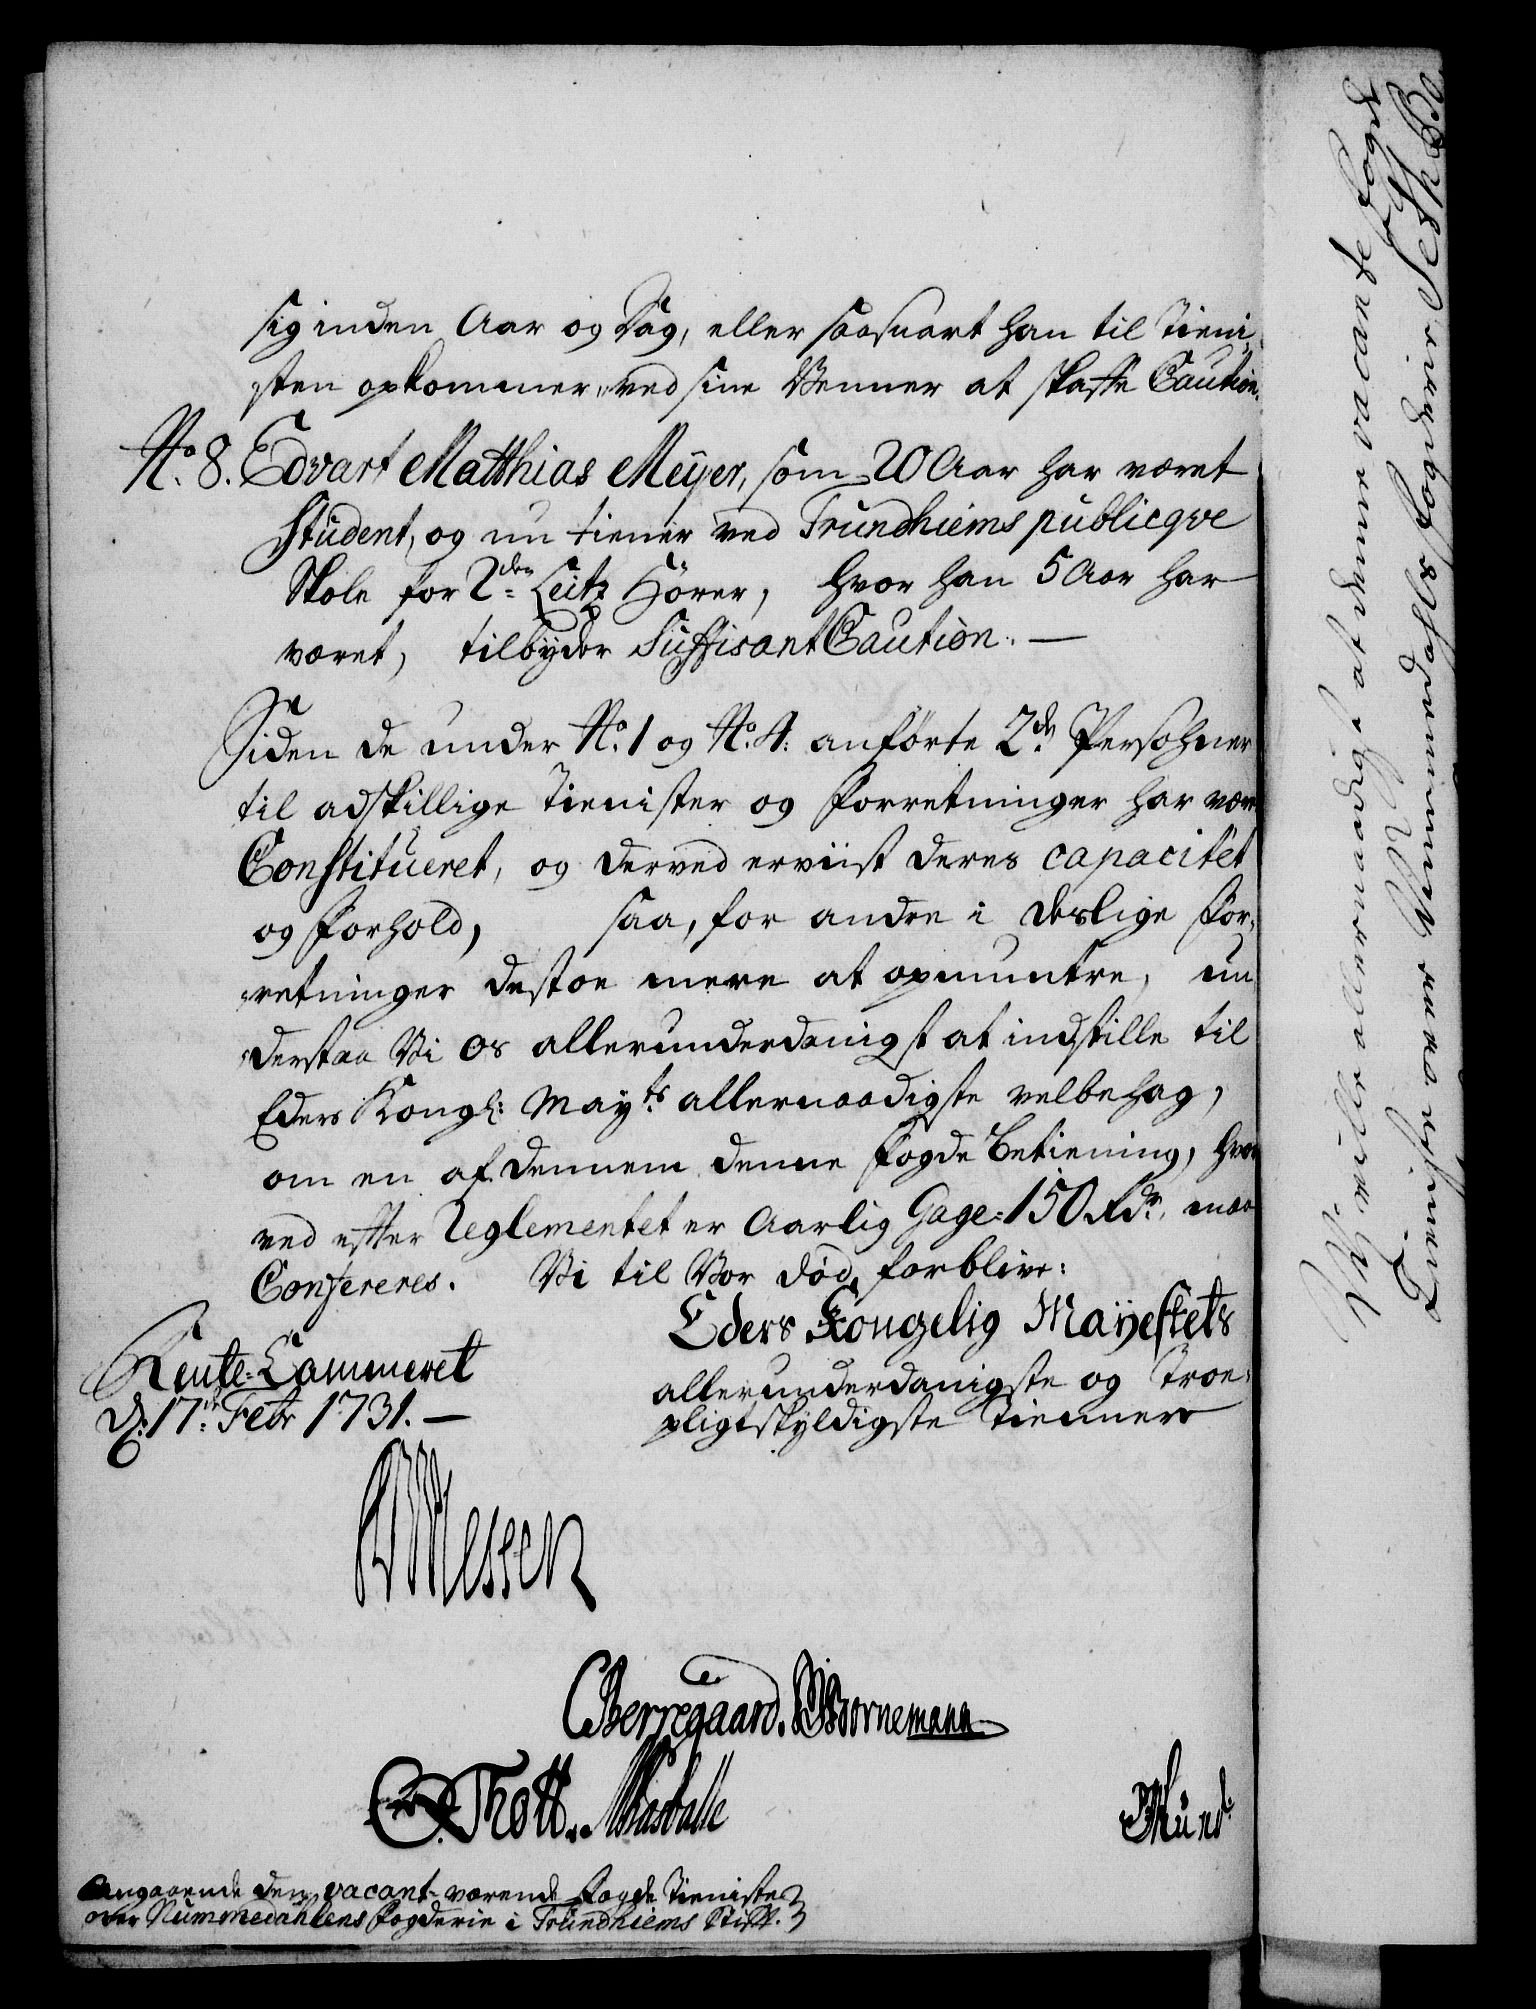 sig inden Aar og Dag, eller saasnart han til Tieni¬
sten opkommer, ved sine Venner at skaffe Caution.
No. 8. Edvart Matthias Meyer, som 20 Aar har været
Student, og nu tiener ved Trundhiems publicqve
Skole for 2den Lectz Hörer, hvor han 5 Aar har
været, tilbyder Suffisant Caution. —
Siden de under No. 1 og No. 4. anførte 2de Persohner
til adskillige Tienister og Forretninger har være
Constitueret, og derved erviist deres capacitet
og Forhold, saa, for andre i deslige For¬
retninger desto mere at opmuntre, un
derstaa Vi os allerunderdanigst at indstille til
Eders Kongl: Mayts allernaadigste velbehag,
om en af dennem denne Fogde Betiening, hvor
ved efter Reglementet er Aarlig Gage 150 Rdr. maa
Confereres. Vi til Vor død forblive:
Eders Kongelig Mayestets
allerunderdanigste og Troe¬
pligtskyldigste Tienner
Rente-Cammeret
D: 17de Febr 1731. —
Messen
CBerregaard. Bornemann
Thott
Angaaende den vacant-værende Fogde Tieniste
over Nummedahlens Fogderie i Trundhiems Stift.
Vi ville allernaadigst at denne vacante Fogde
Tieniste over Nummedahls Fogderier